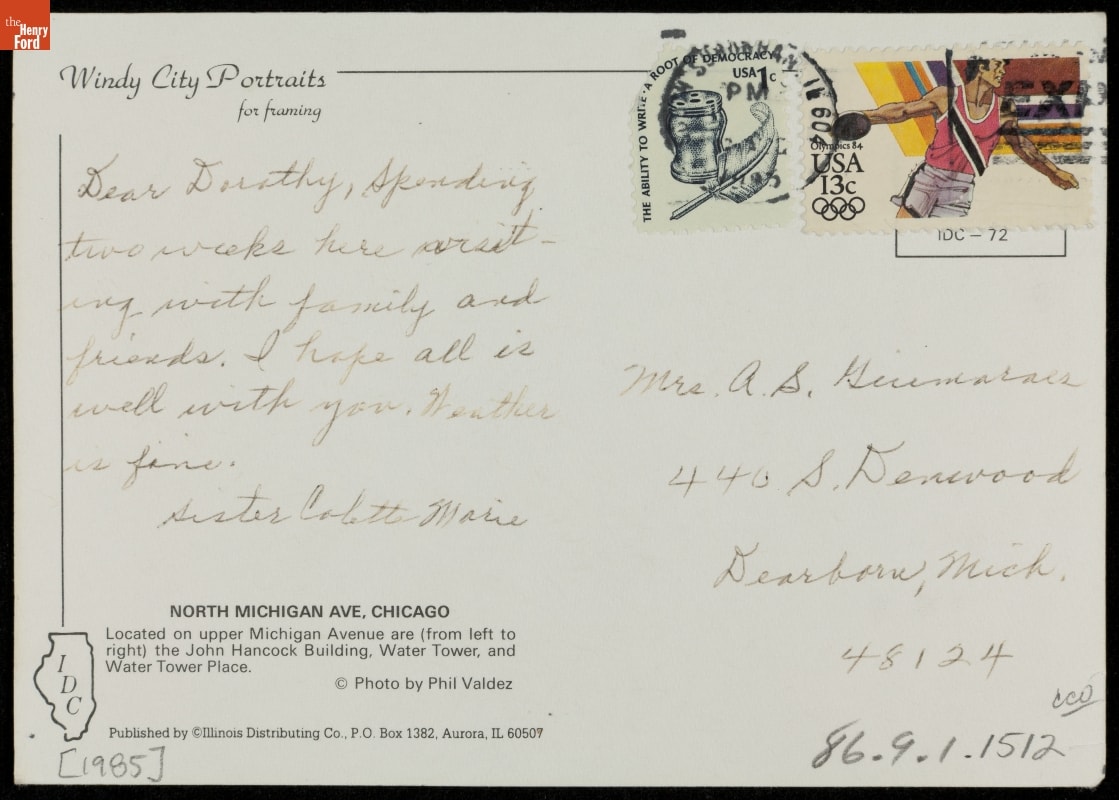 the
Henry
Ford
Windy City Portraits
for framing
THE ABILITY TO WRITE · A ROOT OF DEMOCRACY
USA 1c
PM
IL 604
Olympics 84
USA
13c
IDC – 72
Dear Dorothy, Spending
two weeks here visit-
ing with family and
friends. I hope all is
well with you. Weather
is fine.
Sister Colette Marie
Mrs. A. S. Guimaraes
440 S. Denwood
Dearborn, Mich.
48124
NORTH MICHIGAN AVE, CHICAGO
Located on upper Michigan Avenue are (from left to
right) the John Hancock Building, Water Tower, and
Water Tower Place.
© Photo by Phil Valdez
IDC
Published by ©Illinois Distributing Co., P.O. Box 1382, Aurora, IL 60507
[1985]
86.9.1.1512